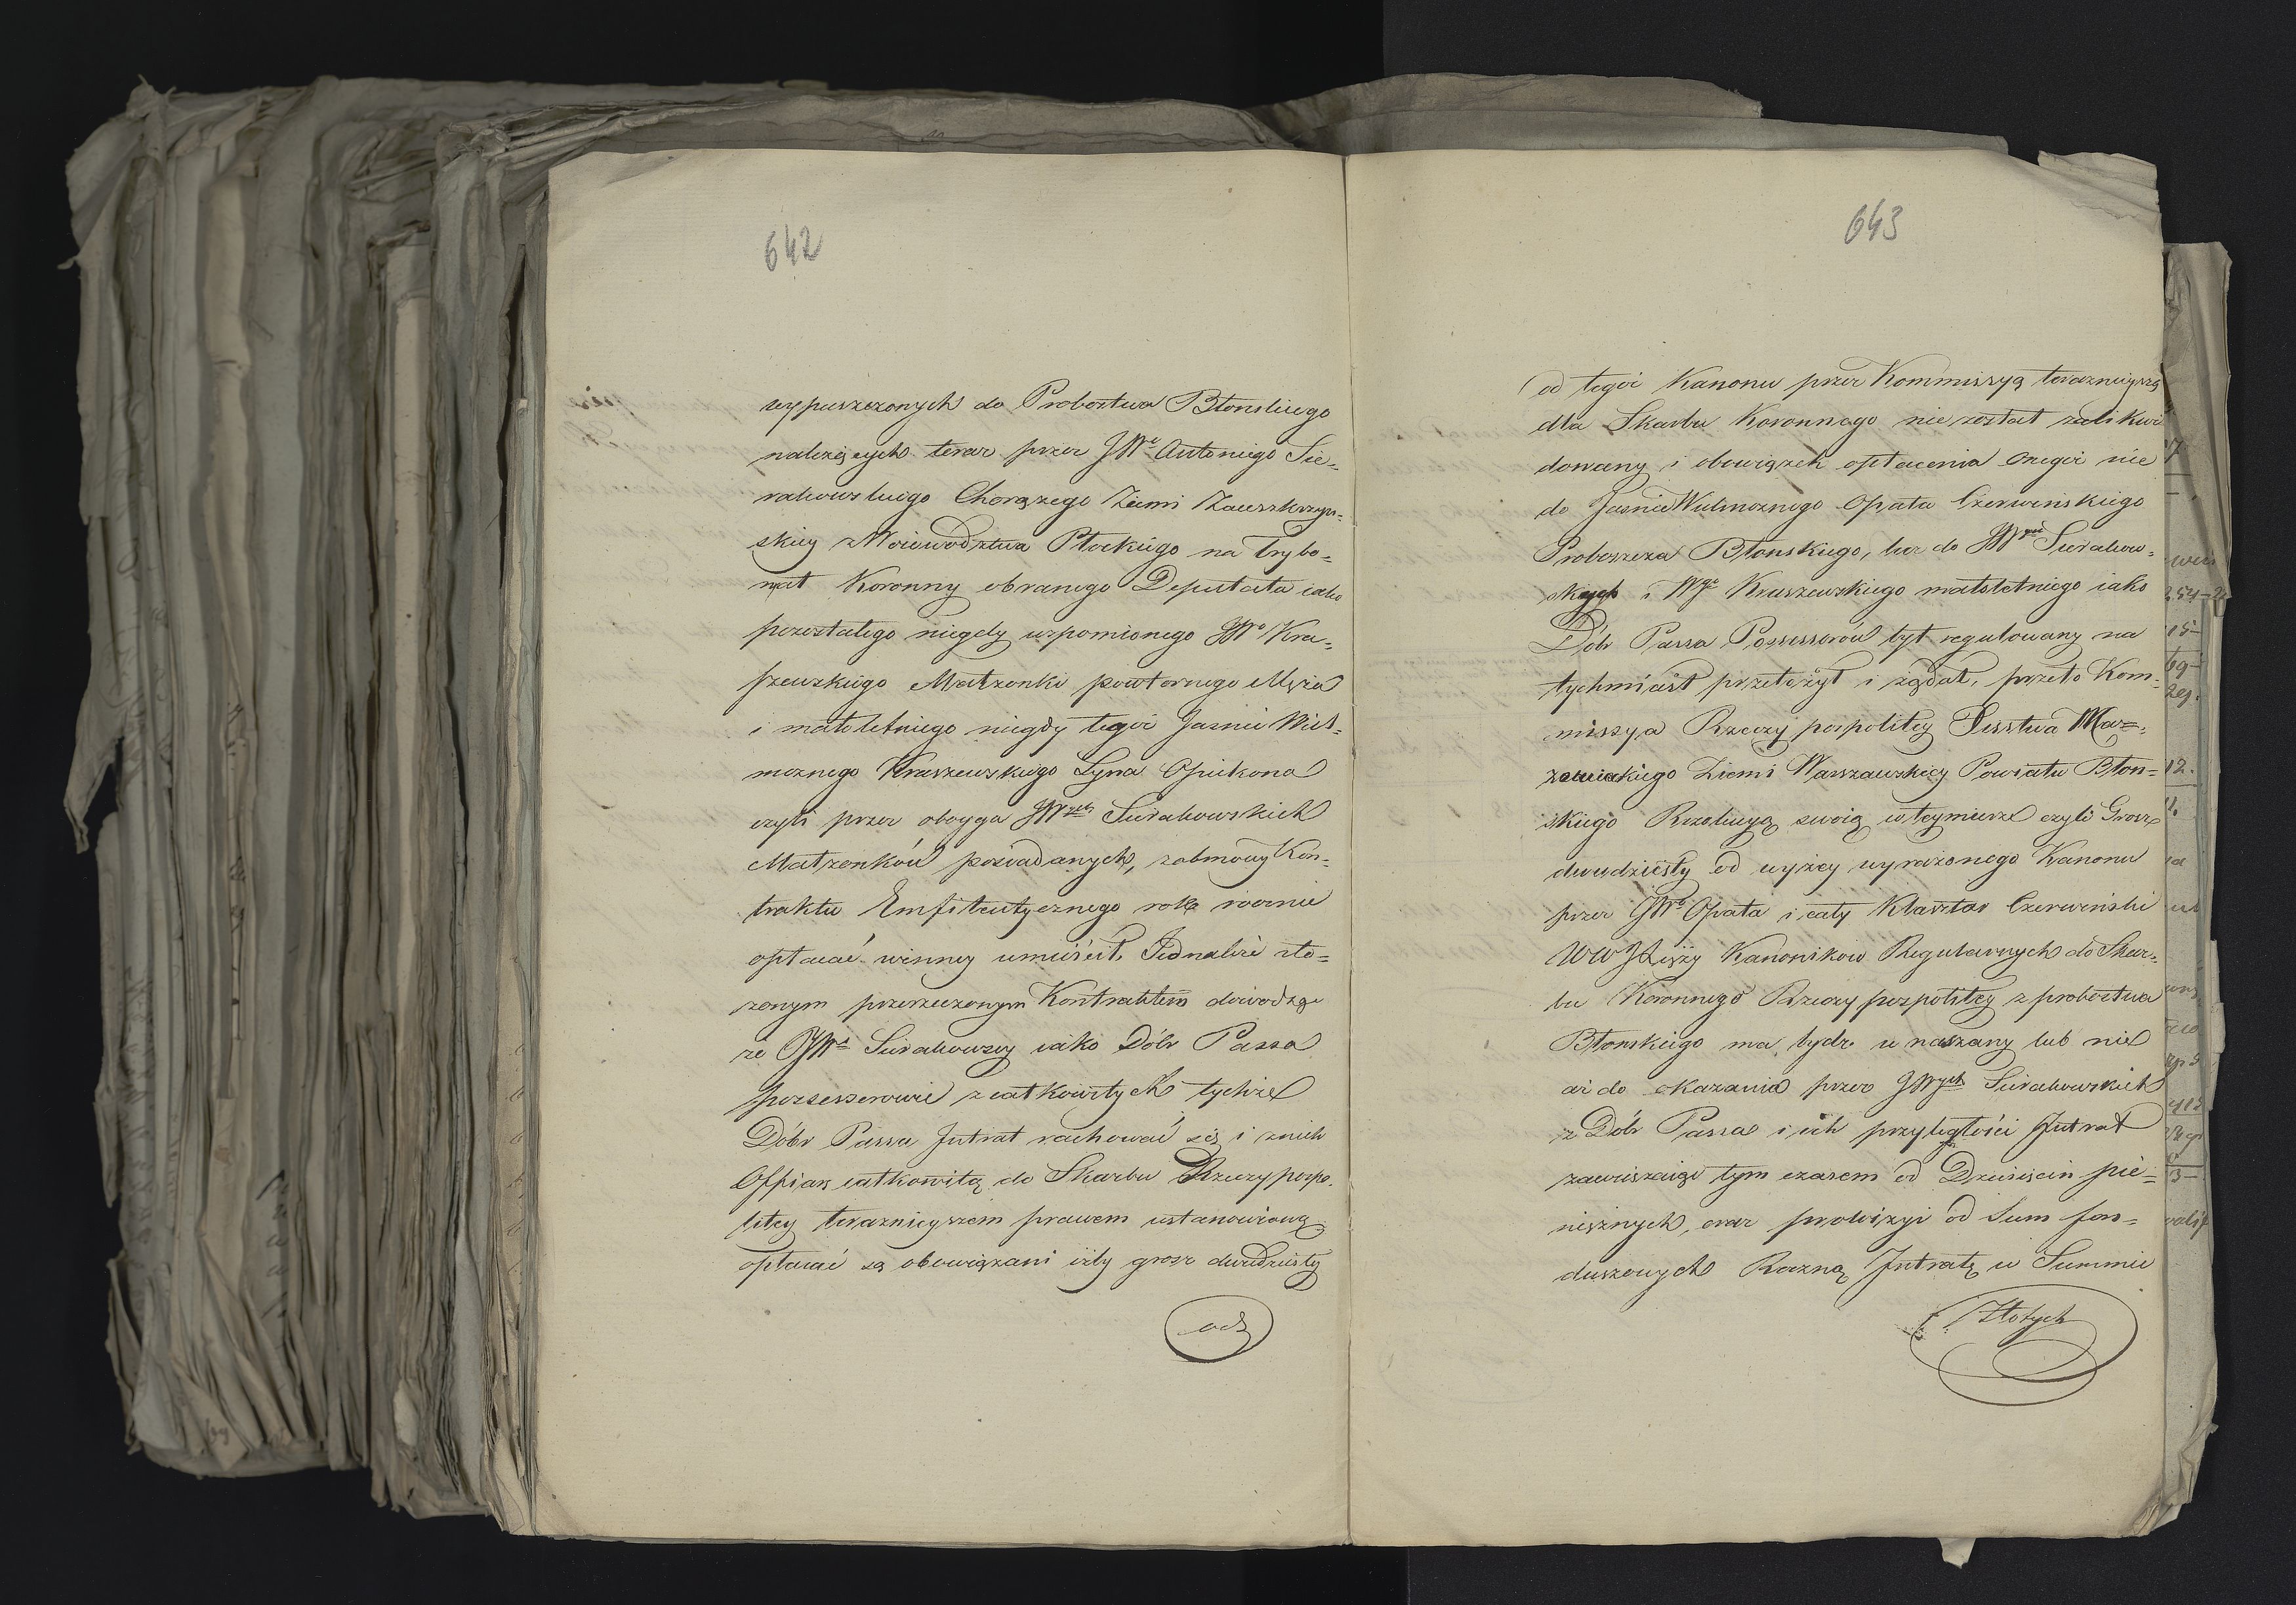 642
wypuszczonych do Probostwa Błonskiego
należących teraz przez JWo Antoniego Sie-
rakowskiego Chorążego Ziemi Zawskrzyn-
skiey z Woiewodztwa Płockiego na Trybo-
nał Koronny obranego Deputata iako
pozostałego niegdy wspomionego JWo Kra-
szewskiego Małżonki powtornego Męża
i małoletniego niegdy tegoż Jasnie Wiel-
możnego Kraszewskiego Syna Opiekona
czyli przez oboyga JWych Sierakowskich
Małżonków posiadanych, z obmowy Kon-
traktu Emfiteutycznego rok rocznie
opłacać winney umieścił, Jednakże zło-
żonym przerzeczonym Kontraktem dowodząc
że JWi Sierakowscy iako Dóbr Passa
possessorowie z całkowitych tychże
Dóbr Passa Intrat rachować się i z nich
Offiarę całkowitą do Skarbu Rzeczypospo-
litey teraznieyszem prawem ustanowioną
opłacać są obowiązani iżby grosz dwudziesty
od
643
od tegoż Kanonu przez Kommissyą teraznieyszą
dla Skarbu Koronnego nie został zalikwi
dowany i obowiązek opłacenia onegoż nie
do Jasnie Wielmożnego Opata Czerwinskiego
Proboszcza Błonskiego, lecz do JW Sierakow-
skich i Wgo Kraszewskiego małoletniego iako
Dóbr Passa Possessorów był regulowany na
tychmiast przełożył i żądał, przeto Kom-
missya Rzeczy pospolitey Xięstwa Ma-
zowieckiego Ziemi Warszawskiey Powiatu Błon-
skiego Rezolucyą swoią w teymierze czyli Grosz
dwudziesty od wyżey wyrażonego Kanonu
przez JWo Opata i cały Klasztor Czerwinski
WWJXięży Kanonikow Regularnych do Skar-
bu Koronnego Rzeczy pospolitey z probostwa
Błonskiego ma bydz wnaszany lub nie
aż do okazania przez JWych Sierakowskich
z Dóbr Passa i ich przyległości Intrat
zawieszaiąc tym czasem od Dziesięcin pie-
niężnych, oraz prowizyi od Sum fun-
duszowych Roczną Intratę w Summie
Złotych